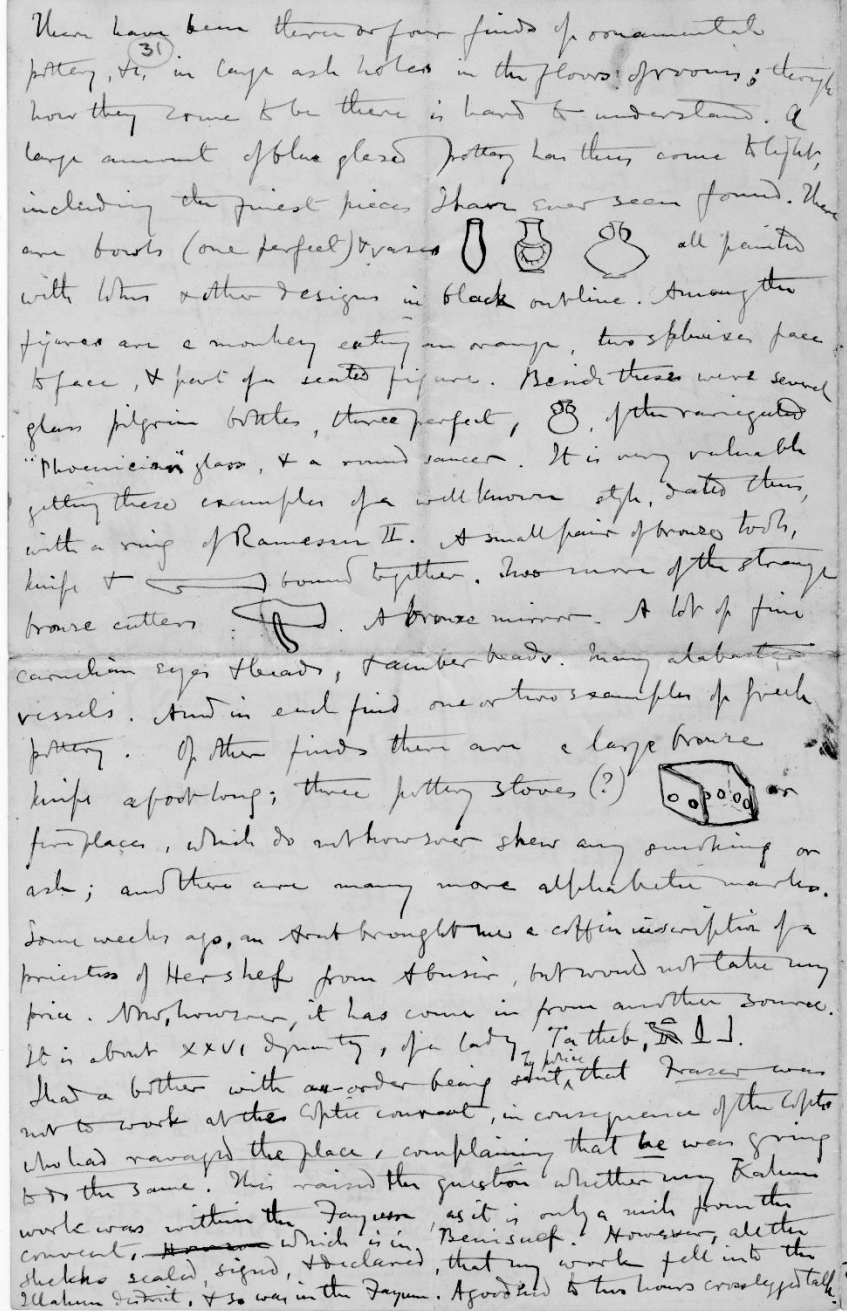 There have been three or four finds of ornamental
31
pottery, &c, in large ash holes in the floors of rooms; though
how they come to be there is hard to understand. A
large amount of blue glazed pottery has thus come to light,
including the finest pieces I have ever seen found. There
are bowls (one perfect) & vases all painted
with lotus & other designs in black outline. Among the
figures are a monkey eating an orange, two sphinxes face
to face, & part of a seated figure. Beside these were several
glass pilgrim bottles, three perfect, of the variegated
"Phoenician" glass, & a round saucer. It is very valuable
getting these examples of a well known style, dated thus,
with a ring of Ramessu II. A small pair of bronze tools,
knife & bound together. Two more of the strange
bronze cutters. A bronze mirror. A lot of fine
carnelian eyes & beads, & amber beads. Many alabaster
vessels. And in each find one or two examples of Greek
pottery. Of other finds there are a large bronze
knife a foot long; three pottery stoves (?) or
fireplaces, which do not however shew any smoking or
ash; and there are many more alphabetic marks.
Some weeks ago, an Arab brought me a coffin inscription of a
priestess of Hershef from Abusir, but would not take my
price. Now, however, it has come in from another source.
It is about XXVI dynasty, of a lady, Ta theb,
I had a bother with an order being sent, by police that Fraser was
not to work at the Coptic convent, in consequence of the Copts
who had ravaged the place, complaining that he was going
to do the same. This raised the question whether my Kahun
work was within the Fayum, as it is only a mile from the
convent, which is in Benisuef. However, all the
shekhs sealed, signed, & declared, that my work fell into the
Illahun district, & so was in the Fayum. A good to two hours crosslegged talk.